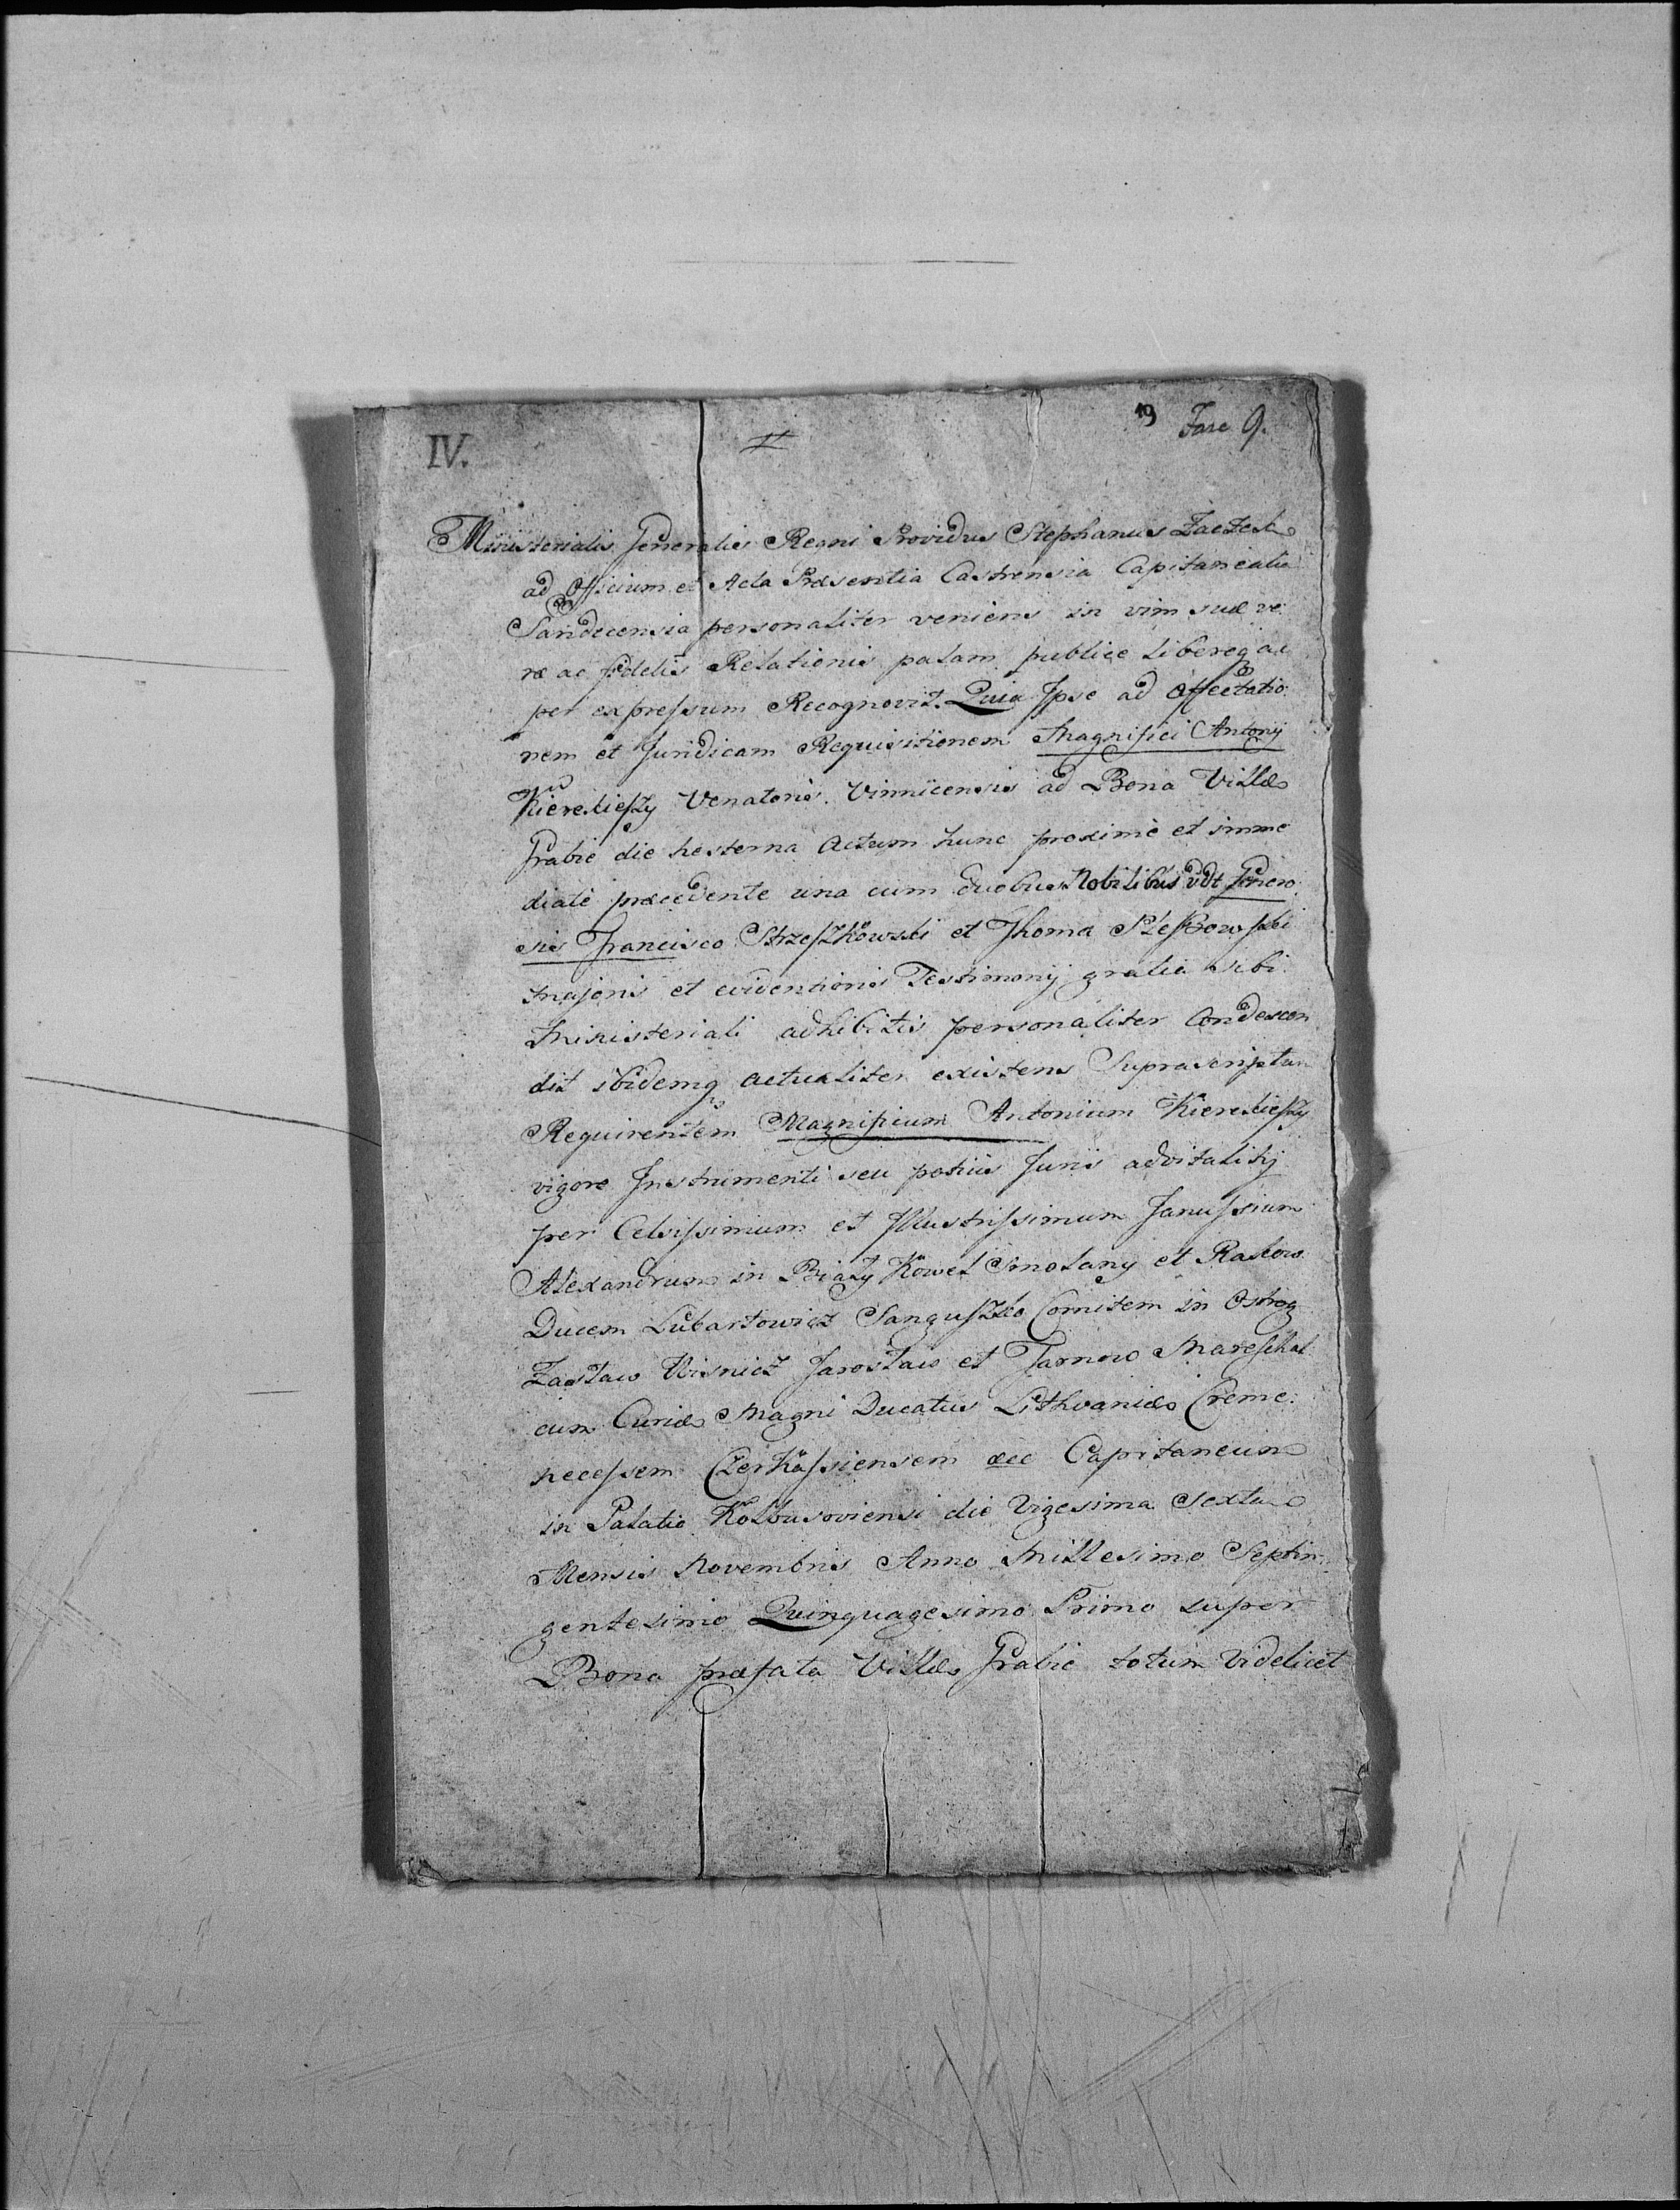 IV.
19 Fasc 9.
Ministerialis Generalis Regni Providus Stephanus
ad Officium et Acta Præsentia Castrensia Capitanealia
Sandecensia personaliter veniens in vim suæ ve:
ræ ac fidelis Relationis palam publice libereq ac
per expressum Recognovit. Quia Ipse ad affectatio:
nem et Juridicam Requisitionem Magnifici Antonij
Kiereskieszy Venatoris Vinnicensis ad Bona Villæ
Grabie die hesterna Actum hunc proxime et imme
diate præcedente una cum duobus Nobilibus vdt Genero:
sis Francisco Strzeszkowski et Thoma
majoris et evidentioris Testimonij gratia sibi
Ministeriali adhibitis personaliter Condescen
dit ibidemq actualiter existens Suprascriptum
Requirentem Magnificum Antonium Kiereskieszy
vigore Instrumenti seu potius Juris advitalitij
per Celsissimum et Illustrissimum Janussium
Alexandrum in Biały Kowel Smolany et Rakow
Ducem Lubartowicz Sanguszko Comitem in Ostrog
Zasław Wisnicz Jarosław et Tarnow Mareschal
cum Curiæ Magni Ducatus Lithvaniæ Creme:
necessem Czerkassiensem æcc Capitaneum
in Palatio Kolbusoviensi die Vigesima Sexta
Mensis Novembris Anno Millesimo Septin:
gentesimo Quinquagesimo Primo super
Bona præfata Villæ Grabie totum videlicet